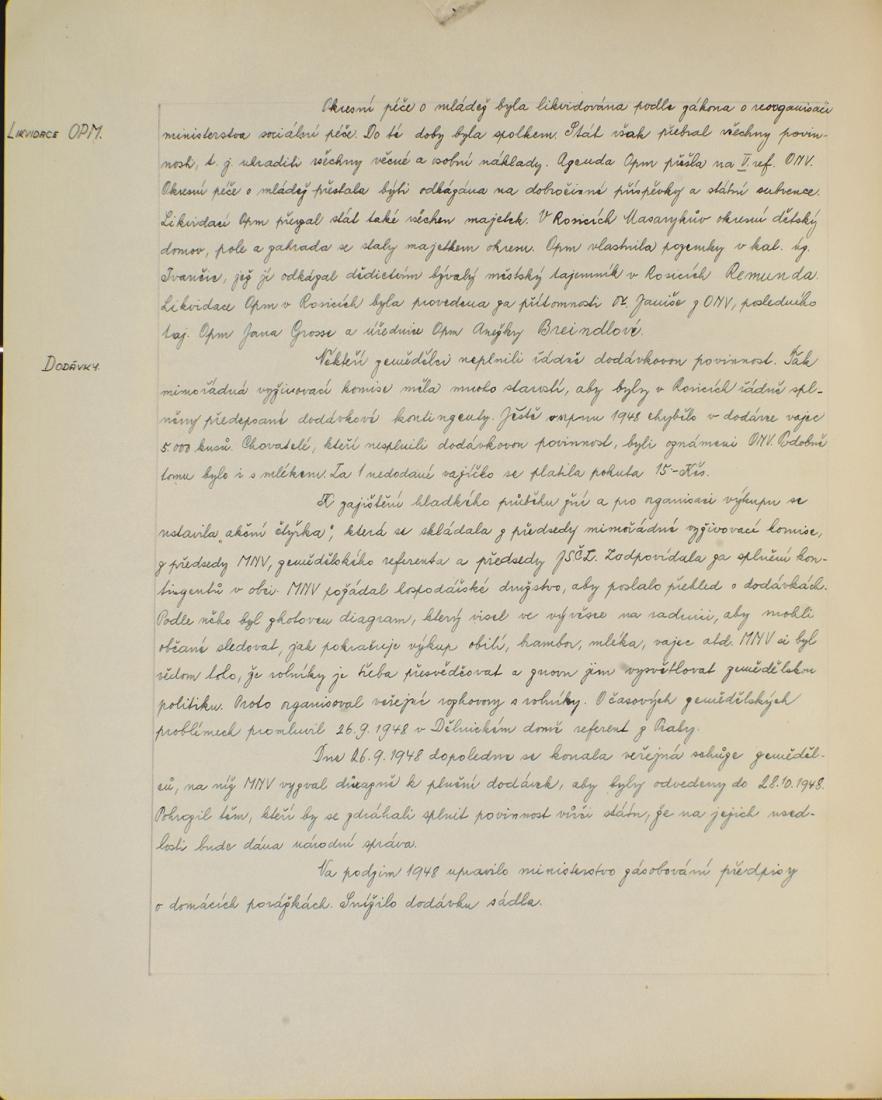 Okresní péče o mládež byla likvidována podle zákona o reorganisaci
LIKVIDACE OPM.
ministerstva sociální péče. Do té doby byla spolkem. Stát však přebral všechny povin-
nosti, t. j. uhraditi všechny věcné a osobní náklady. Agenda Opm přešla na V. ref. ONV.
Okresní péče o mládež přestala býti odkázána na dobročinné příspěvky a státní subvence.
Likvidací Opm převzal stát také všechen majetek. V Rosicích Masarykův okresní dětský
domov, pole a zahrada se staly majetkem okresu. Opm vlastnila pozemky v kat. úz.
Ivančic, jež jí odkázal dědictvím bývalý městský tajemník v Rosicích Remunda.
Likvidace Opm v Rosicích byla provedena za přítomnosti Janiše z ONV, posledního
taj. Opm Jana Grosse a úřednice Opm Anežky Breindlové.
DODÁVKY.
Někteří zemědělci neplnili řádně dodávkovou povinnost. Tak
mimořádná vyživovací komise měla mnoho starostí, aby byly v Rosicích řádně spl-
něny předepsané dodávkové kontingenty. Ještě v srpnu 1948 chybělo v dodávce vajec
5.000 kusů. Chovatelé, kteří nesplnili dodávkovou povinnost, byli oznámeni ONV. Podobně
tomu bylo i s mlékem. Za 1 nedodané vajíčko se platila pokuta 15-Kčs.
K zajištění hladkého průběhu žní a pro organisaci výkupu se
ustavila „akční čtyřka", která se skládala z předsedy mimořádné vyživovací komise,
z předsedy MNV, zemědělského referenta a předsedy JSČZ. Zodpovídala za splnění kon-
tingentů v obci. MNV požádal hospodářské družstvo, aby poslalo přehled o dodávkách.
Podle něho byl zhotoven diagram, který visel ve vývěsce na radnici, aby mohli
občané sledovat, jak pokračuje výkup obilí, brambor, mléka, vajec atd. MNV si byl
vědom toho, že rolníky je třeba přesvědčovat a znovu jim vysvětlovat zemědělskou
politiku. Proto organisoval veřejné rozhovory s rolníky. O časových zemědělských
problémech promluvil 26.9.1948 v Dělnickém domě referent z Prahy.
Dne 26.9.1948 dopoledne se konala veřejná schůze zeměděl-
ců, na níž MNV vyzval důrazně k plnění dodávek, aby byly odvedeny do 28.10.1948.
Pohrozil těm, kteří by se zdráhali splnit povinnost vůči státu, že na jejich used-
losti bude dána národní správa.
Na podzim 1948 upravilo ministerstvo zásobování předpisy
o domácích porážkách. Snížilo dodávku sádla.